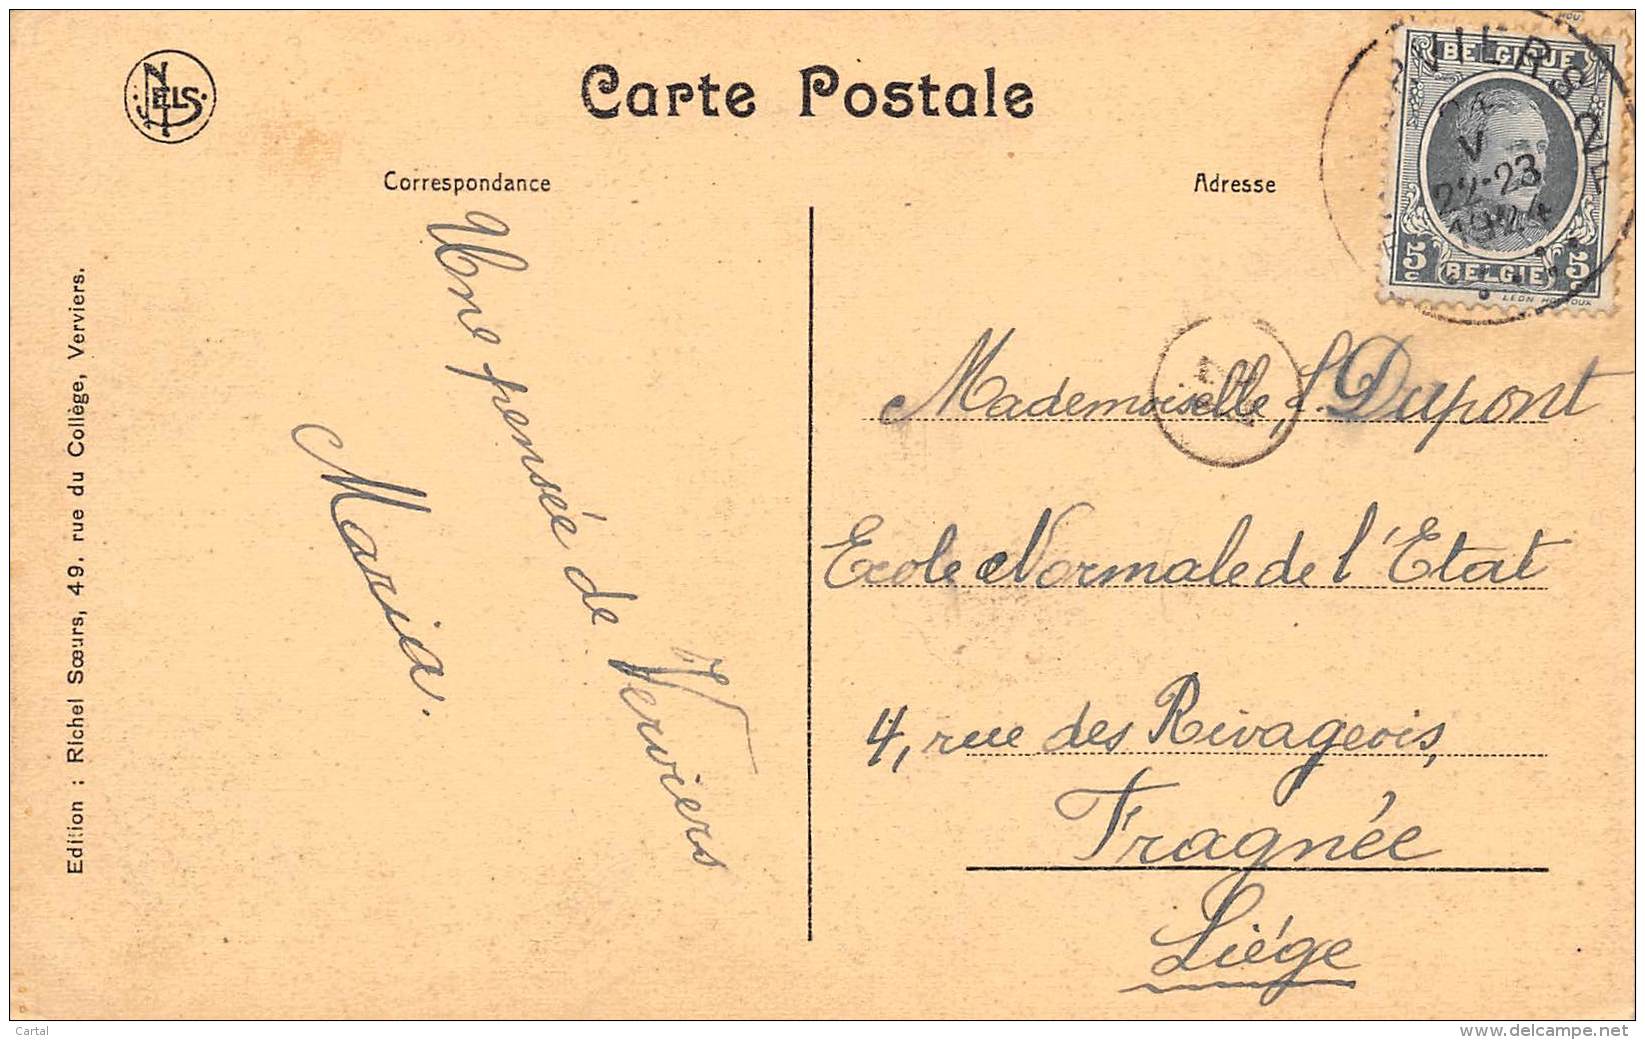 NELS
Carte Postale
Correspondance
Adresse
BELGIQUE
VIERS
2
V
22-23
5c
5c
BELGIE
Une pensée de Verviers
Maria.
Mademoiselle L. Dupont
Ecole Normale de l'Etat
4, rue des Rivageois,
Fragnée
Liége
Edition : Richel Sœurs, 49, rue du Collège, Verviers.
Cartal
www.delcampe.net